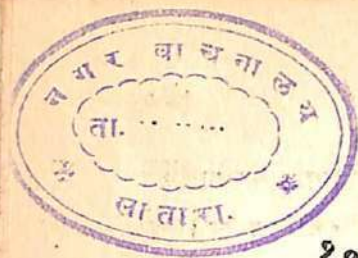 नगर वाचनालय
ता. .. .....
सातारा.